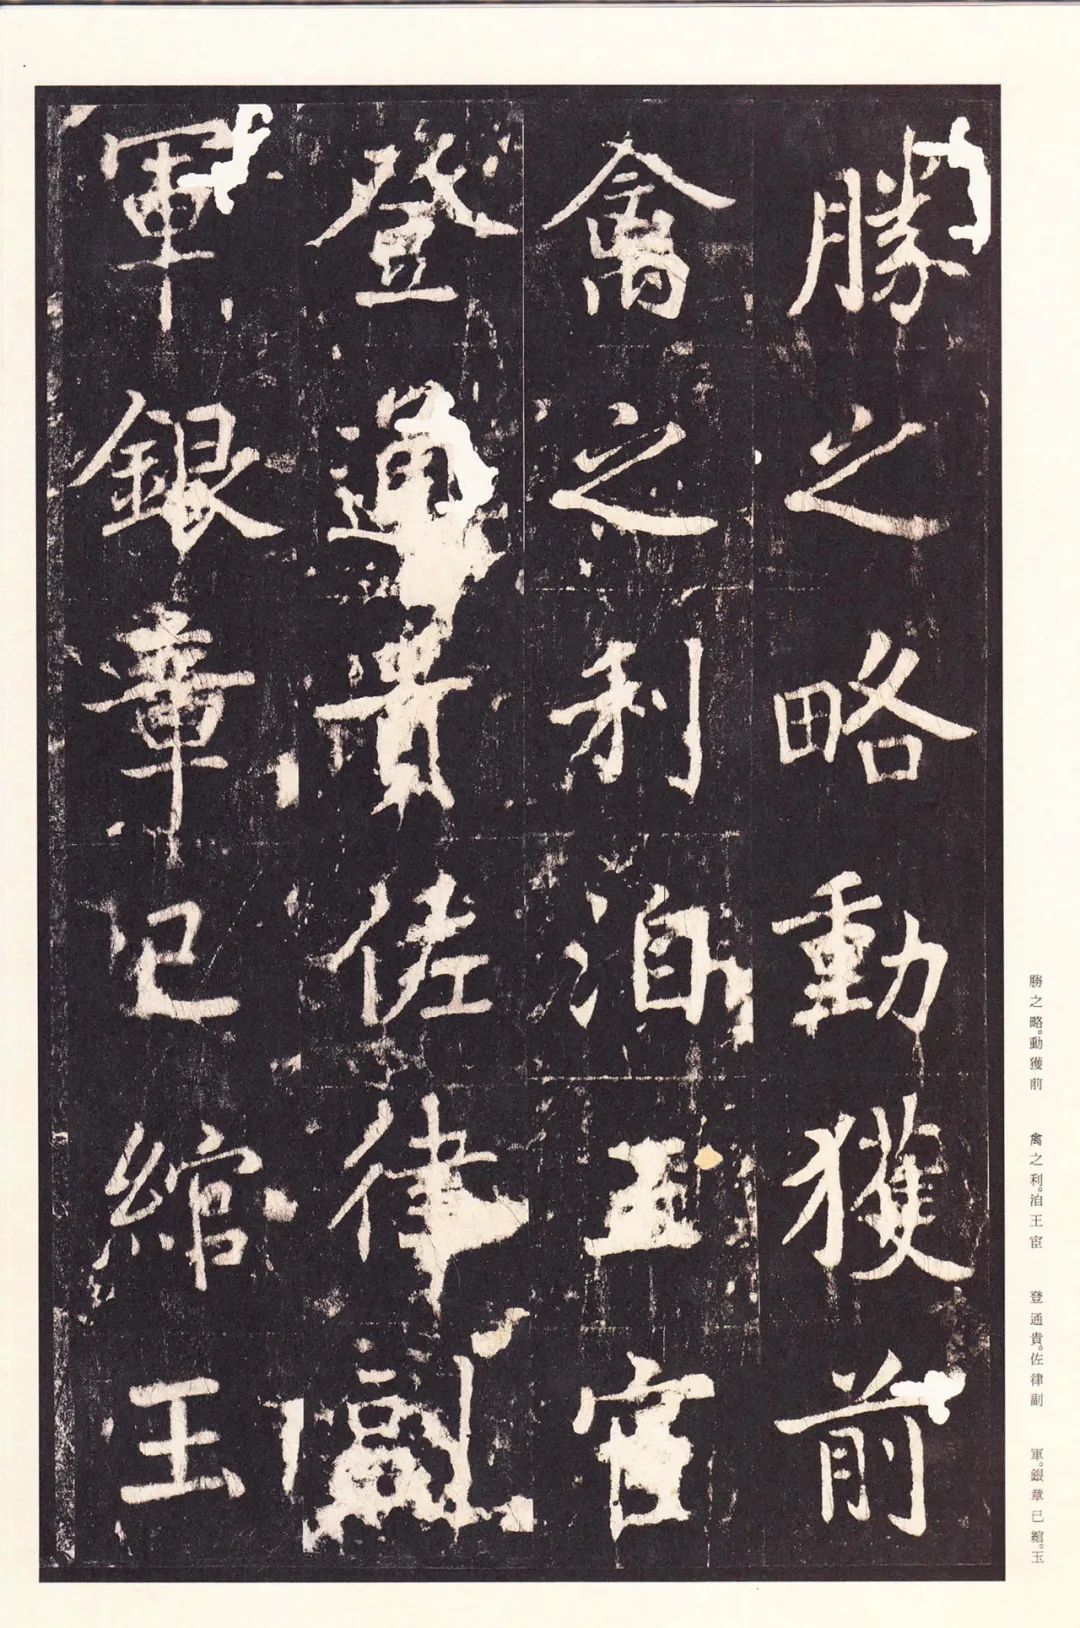 勝之略動獲前
禽之利洎王宦
登通貴佐律副
軍銀章已綰玉
勝之略。動獲前
禽之利。洎王宦
登通貴。佐律副
軍。銀章已綰。玉